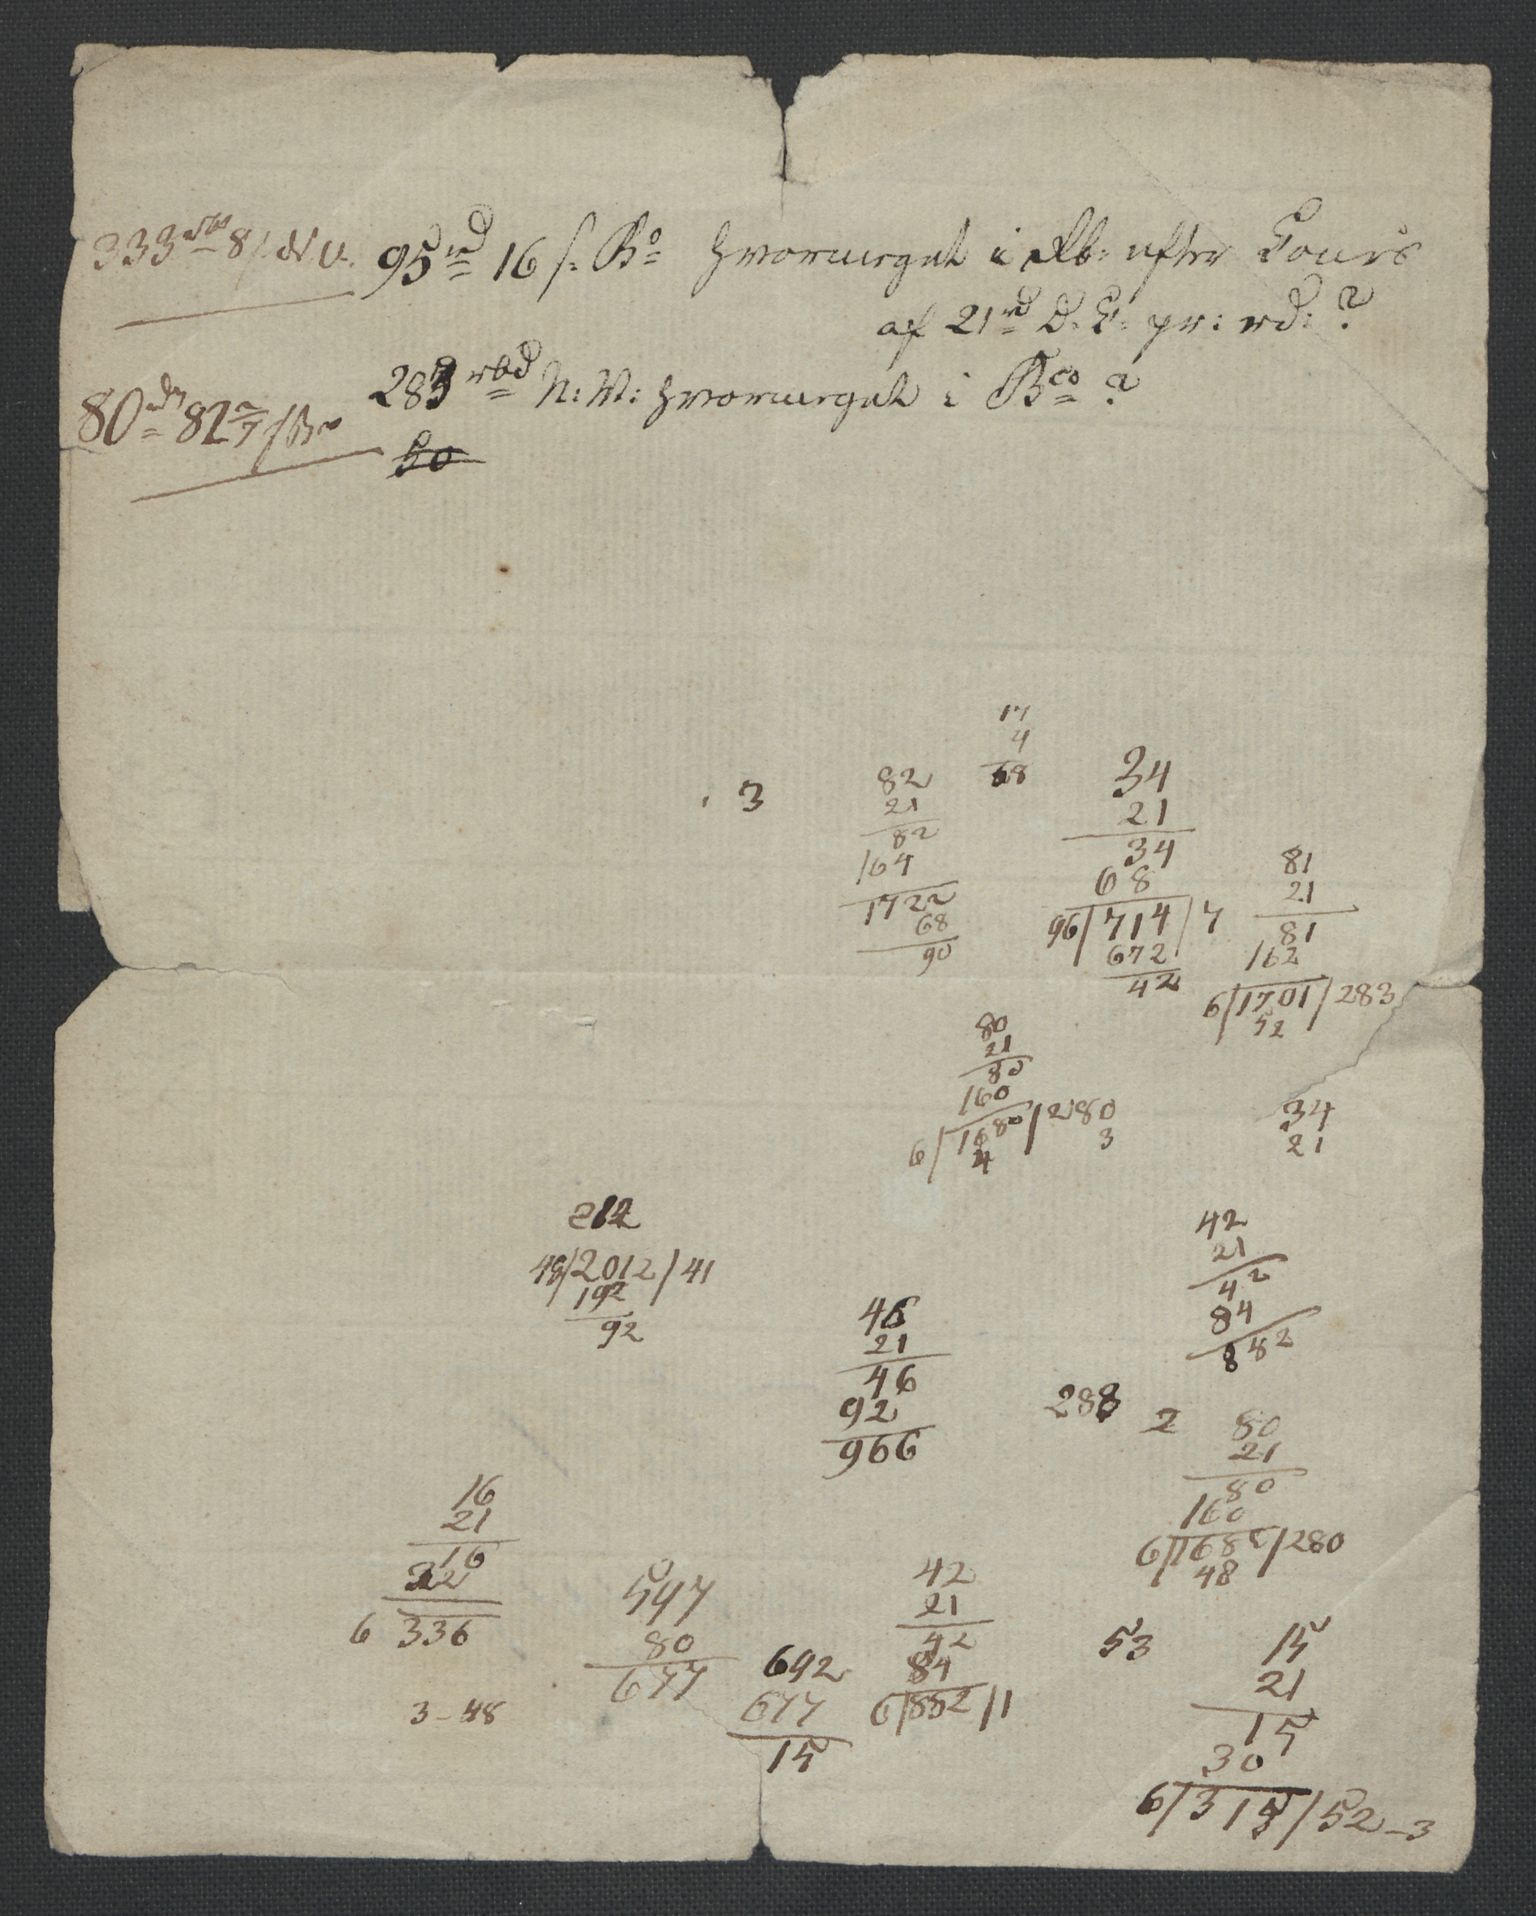 333 rbd 8 s N.V. 95 rd 16 s. Bo hvormeget i Rb: efter Cours
af 21 rd D. C. pr: rd: ?
80 rd 82 2/7 s Bo 283 rbd N: V: hvormeget i Bco ?
50
17
4
68
3
82
21
82
164
1722
68
90
34
21
34
68
96/714/7
672
42
81
21
81
162
6/1701/283
52
80
21
80
160
6/1680/280
4 3
34
21
212
48/2012/41
192
92
42
21
42
84
882
46
21
46
92
966
288 2
80
21
80
160
6/1680/280
48
16
21
16
32
6 336
3-48
597
80
677
692
677
15
42
21
42
84
6/882/1
53
15
21
15
30
6/315/52-3